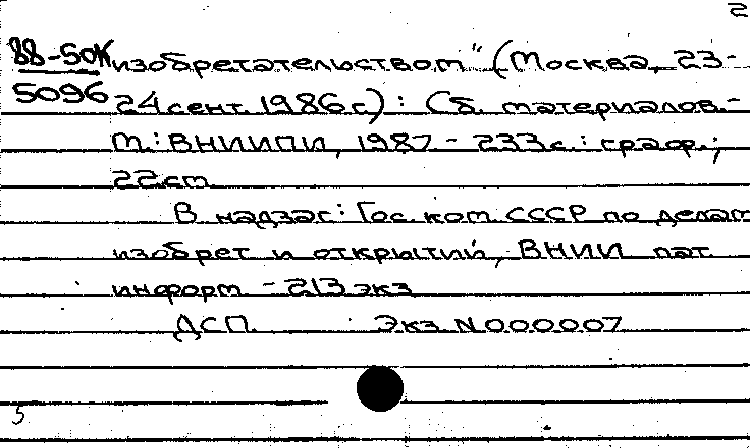 2
88-50К изобретательством" (Москва, 23-
5096 24 сент. 1986 г.) : Сб. материалов. -
М. : ВНИИПИ, 1987 - 233 с. : граф. ;
22 см.
В надзаг : Гос. ком. СССР по делам
изобрет и открытий, ВНИИ пат.
информ - 213 экз
ДСП. Экз N000007
5